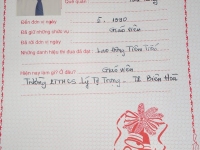 Quê quán:
Đến đơn vị ngày 5. 1990
Đã giữ những chức vụ Giáo viên
Đã rời đơn vị ngày
Những danh hiệu thi đua đã đạt: Lao Động Tiên Tiến
Hiện nay làm gì? Ở đâu? Giáo viên
Trường PTTHCS Lý Tự Trọng - TP. Biên Hòa